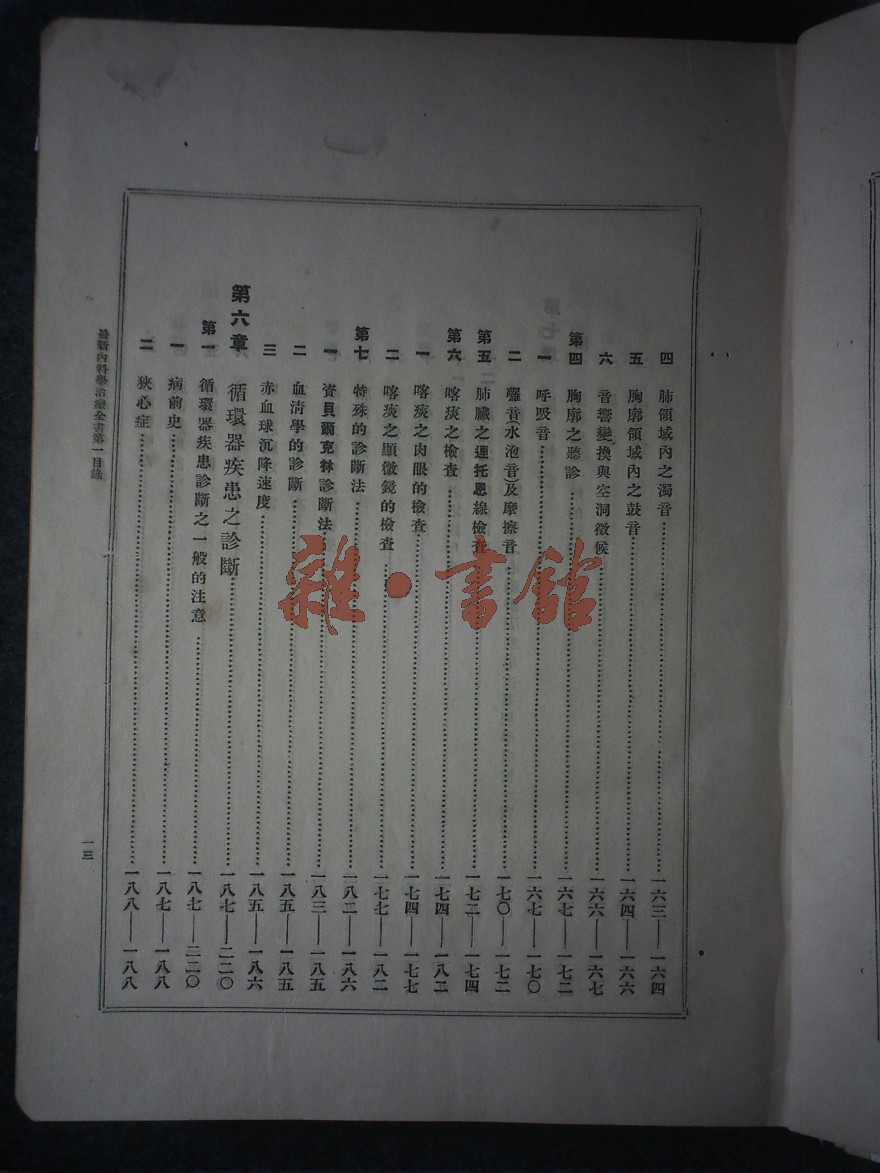 四 肺領域內之濁音……一六三——一六四
五 胸廓領域內之鼓音……一六四——一六六
六 音響變換與空洞徵候……一六六——一六七
第四 胸廓之聽診……一六七——一七二
一 呼吸音……一六七——一七〇
二 囉音(水泡音)及摩擦音……一七〇——一七二
第五 肺臟之連托恩線檢查……一七二——一七四
第六 喀痰之檢查……一七四——一八二
一 喀痰之肉眼的檢查……一七四——一七七
二 喀痰之顯微鏡的檢查……一七七——一八二
第七 特殊的診斷法……一八二——一八六
一 資貝爾克林診斷法……一八三——一八五
二 血清學的診斷……一八五——一八五
三 赤血球沉降速度……一八五——一八六
第六章 循環器疾患之診斷……一八七——二二〇
第一 循環器疾患診斷之一般的注意……一八七——二二〇
一 病前史……一八七——一八八
二 狹心症……一八八——一八八
最新內科學治療全書第一目錄
一三
雜·書館